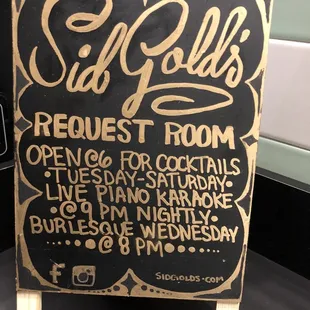 Sid Gold's
REQUEST ROOM
OPEN @6 FOR COCKTAILS
• TUESDAY-SATURDAY •
LIVE PIANO KARAOKE
• @ 9 PM NIGHTLY •
BURLESQUE WEDNESDAY
@ 8 PM
f
SIDGOLDS.COM